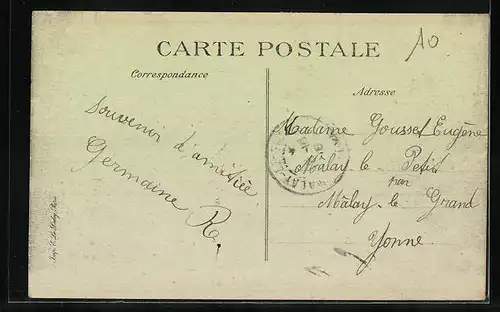 CARTE POSTALE
10
Correspondance
Adresse
Souvenir d'amitié
Germaine R.
Madame Gousset Eugène
Mâlay le Petit
par
Mâlay le Grand
Yonne